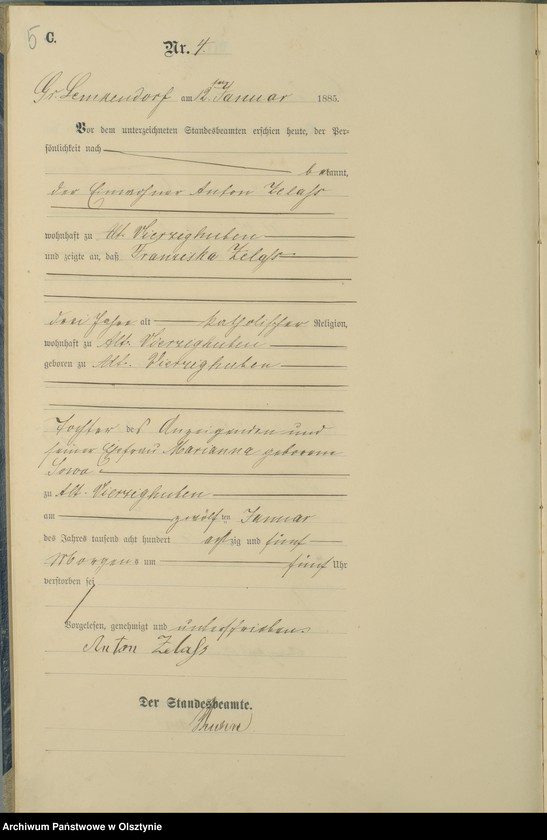 5 C.
Nr. 4.
Gr. Lemkendorf am 12ten Januar 1885.
Vor dem unterzeichneten Standesbeamten erschien heute, der Per-
sönlichkeit nach
bekannt,
der Einwohner Anton Zelass
wohnhaft zu Alt Vierzighuben
und zeigte an, daß Franziska Zelass
drei Jahre alt katholischer Religion,
wohnhaft zu Alt Vierzighuben
geboren zu Alt Vierzighuben
Tochter des Anzeigenden und
seiner Ehefrau Marianna geborene
Sowa
zu Alt Vierzighuben
am zwölften Januar
des Jahres tausend acht hundert achtzig und fünf
Morgens um fünf Uhr
verstorben sei
Vorgelesen, genehmigt und unterschrieben
Anton Zelass
Der Standesbeamte.
Archiwum Państwowe w Olsztynie